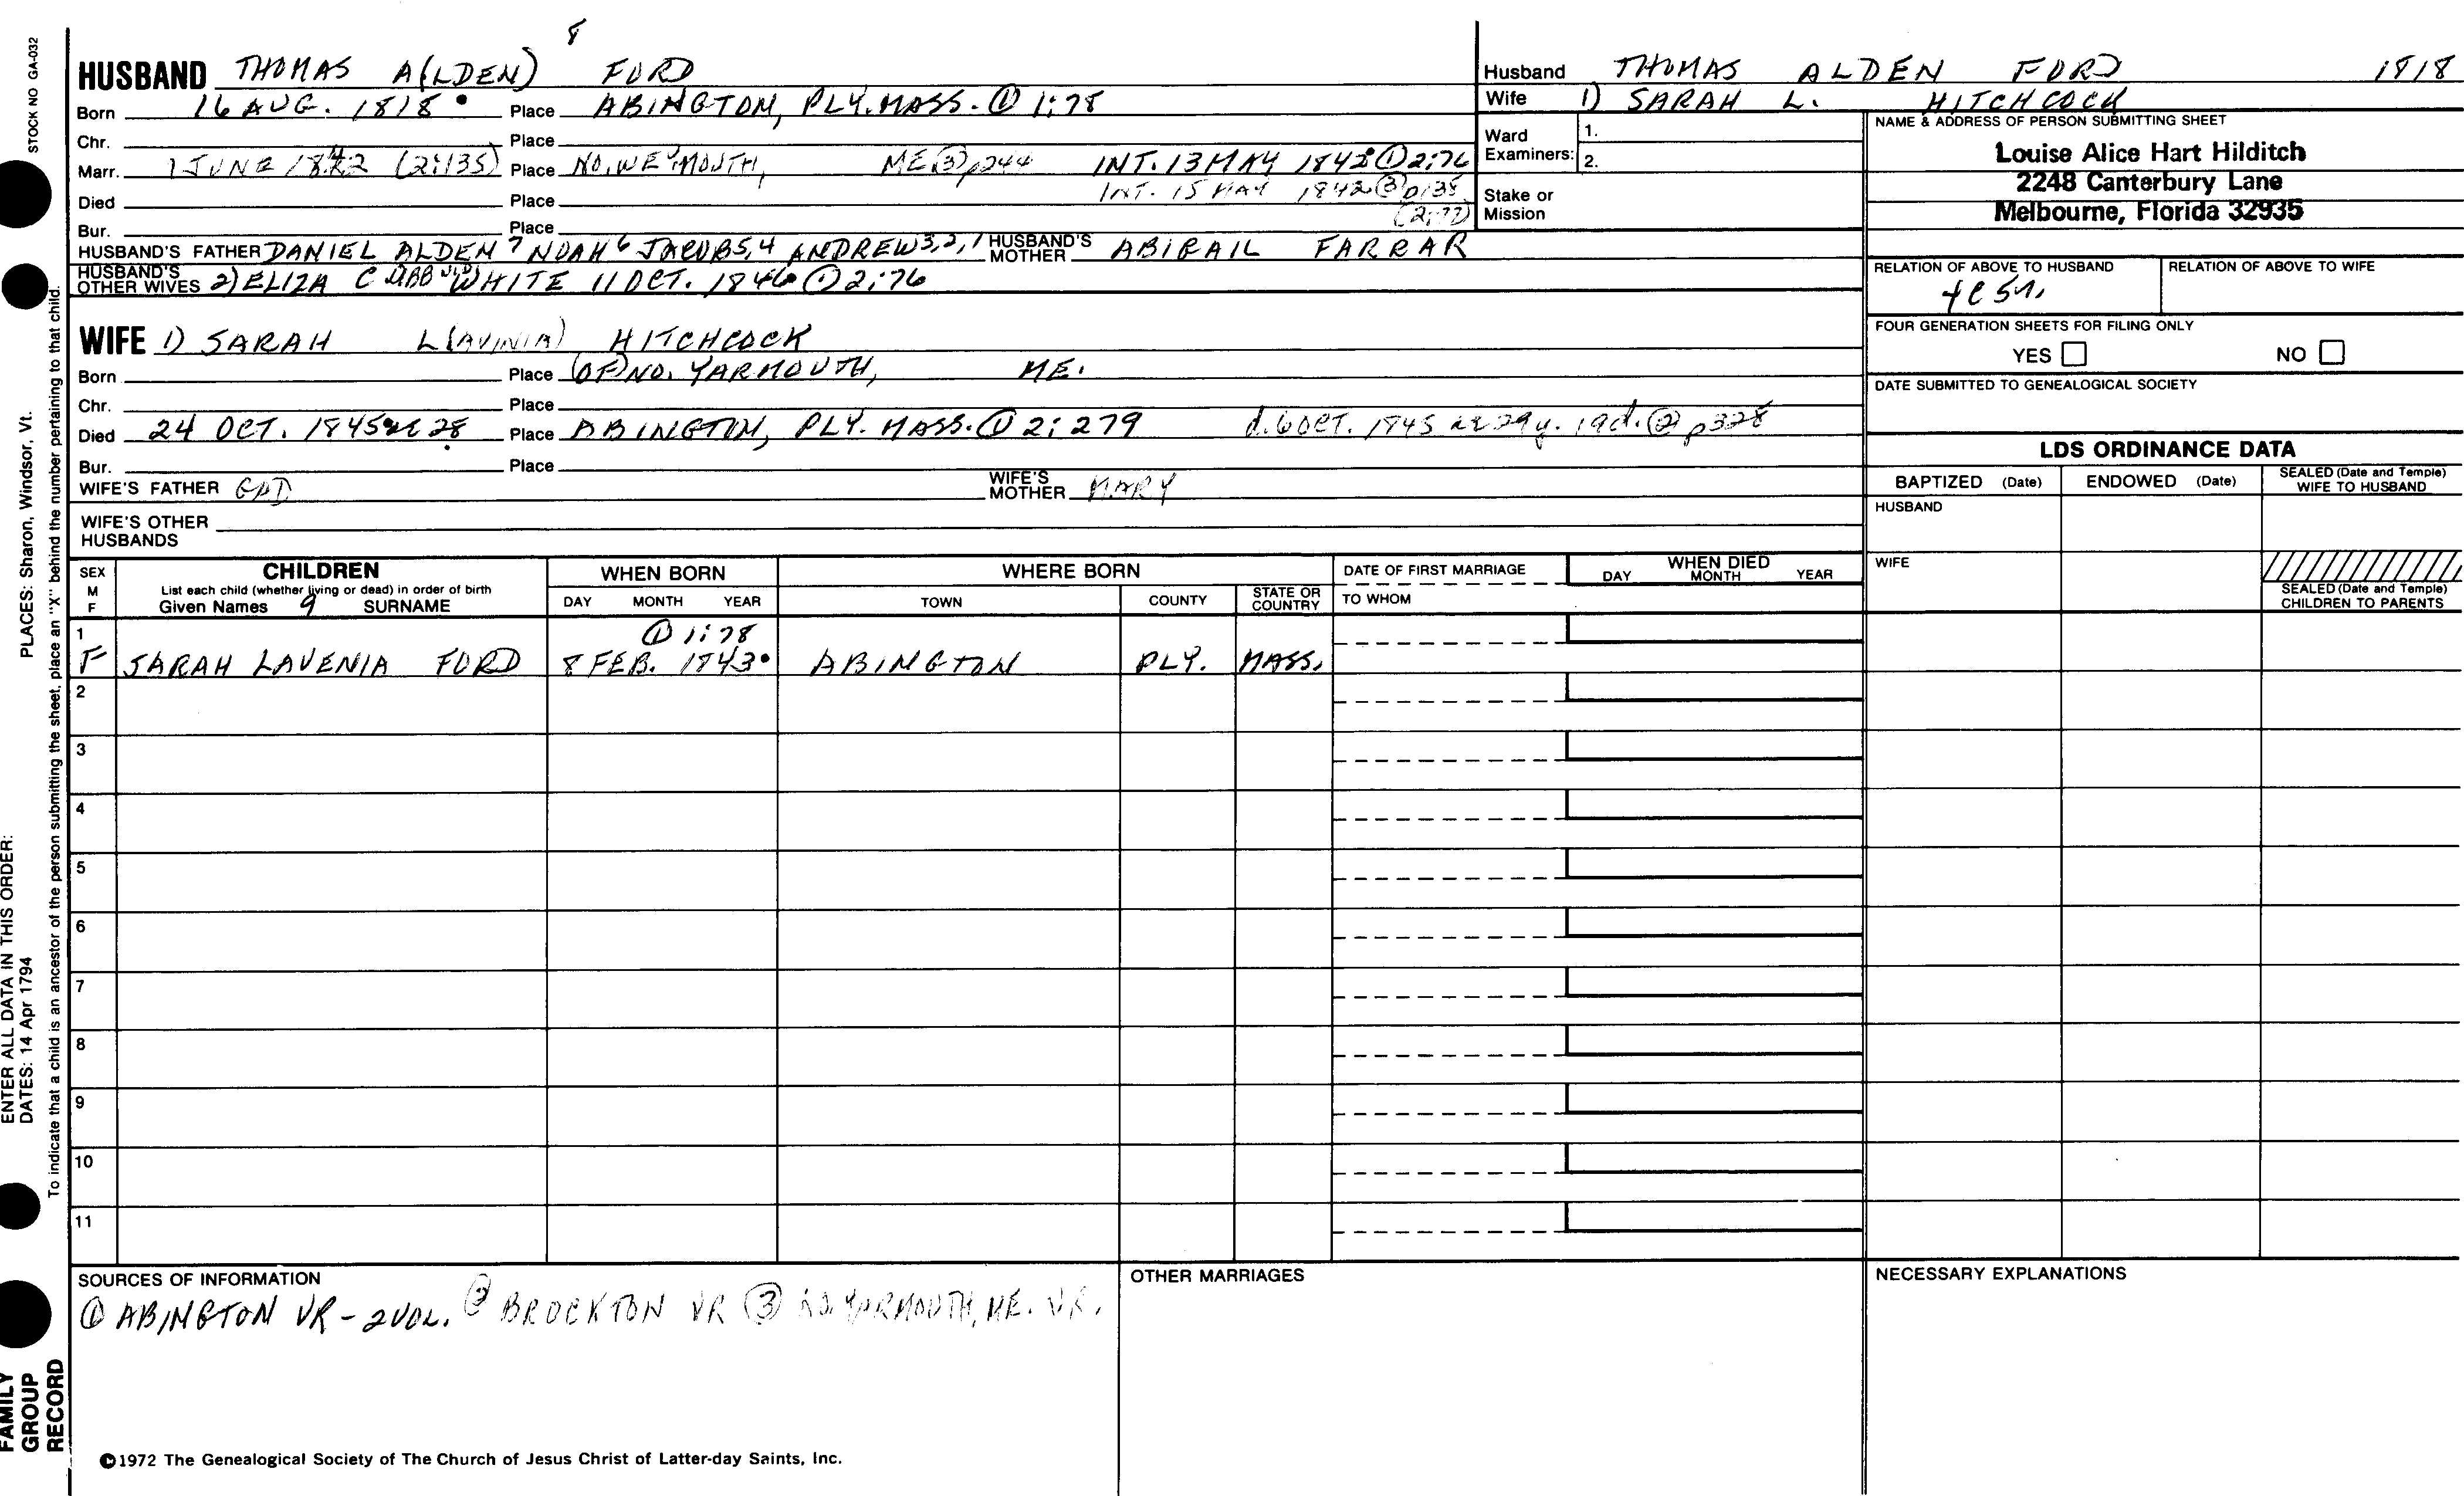 STOCK NO GA-032
8
HUSBAND THOMAS A(LDEN) FORD
Born 16 AUG. 1818 Place ABINGTON, PLY. MASS. ① 1:78
Chr. Place
Marr. 1 JUNE 1842 (2:135) Place NO. WEYMOUTH, ME ③ p244 INT. 13 MAY 1842 ① 2:76
INT. 15 MAY 1842 ③ p135
Died Place
(2:77)
Bur. Place
HUSBAND'S FATHER DANIEL ALDEN 7 NOAH 6 JACOB 5,4 ANDREW 3,2,1 HUSBAND'S MOTHER ABIGAIL FARRAR
HUSBAND'S OTHER WIVES 2) ELIZA C WHITE 11 OCT. 1846 ① 2:76
WIFE 1) SARAH L(AVINIA) HITCHCOCK
Born Place (OF) NO. YARMOUTH, ME.
Chr. Place
Died 24 OCT. 1845 ae 28 Place ABINGTON, PLY. MASS. ① 2:279 d. 6 OCT. 1845 ae 29y. 19d. ② p328
Bur. Place
WIFE'S FATHER GAD WIFE'S MOTHER MARY
WIFE'S OTHER HUSBANDS
Husband THOMAS ALDEN FORD 1818
Wife 1) SARAH L. HITCHCOCK
Ward Examiners: 1.
2.
Stake or Mission
NAME & ADDRESS OF PERSON SUBMITTING SHEET
Louise Alice Hart Hilditch
2248 Canterbury Lane
Melbourne, Florida 32935
RELATION OF ABOVE TO HUSBAND RELATION OF ABOVE TO WIFE
FOUR GENERATION SHEETS FOR FILING ONLY
YES NO
DATE SUBMITTED TO GENEALOGICAL SOCIETY
LDS ORDINANCE DATA
BAPTIZED (Date) ENDOWED (Date) SEALED (Date and Temple) WIFE TO HUSBAND
HUSBAND
WIFE
SEALED (Date and Temple) CHILDREN TO PARENTS
SEX M F CHILDREN WHEN BORN WHERE BORN DATE OF FIRST MARRIAGE WHEN DIED
List each child (whether living or dead) in order of birth
Given Names 9 SURNAME DAY MONTH YEAR TOWN COUNTY STATE OR COUNTRY TO WHOM DAY MONTH YEAR
1 ① 1:78
F SARAH LAVENIA FORD 8 FEB. 1843 ABINGTON PLY. MASS.
2
3
4
5
6
7
8
9
10
11
SOURCES OF INFORMATION
① ABINGTON VR - 2 VOL. ② BROCKTON VR ③ NO. YARMOUTH, ME. VR.
OTHER MARRIAGES
NECESSARY EXPLANATIONS
©1972 The Genealogical Society of The Church of Jesus Christ of Latter-day Saints, Inc.
FAMILY
GROUP
RECORD
ENTER ALL DATA IN THIS ORDER:
DATES: 14 Apr 1794
PLACES: Sharon, Windsor, Vt.
To indicate that a child is an ancestor of the person submitting the sheet, place an "X" behind the number pertaining to that child.